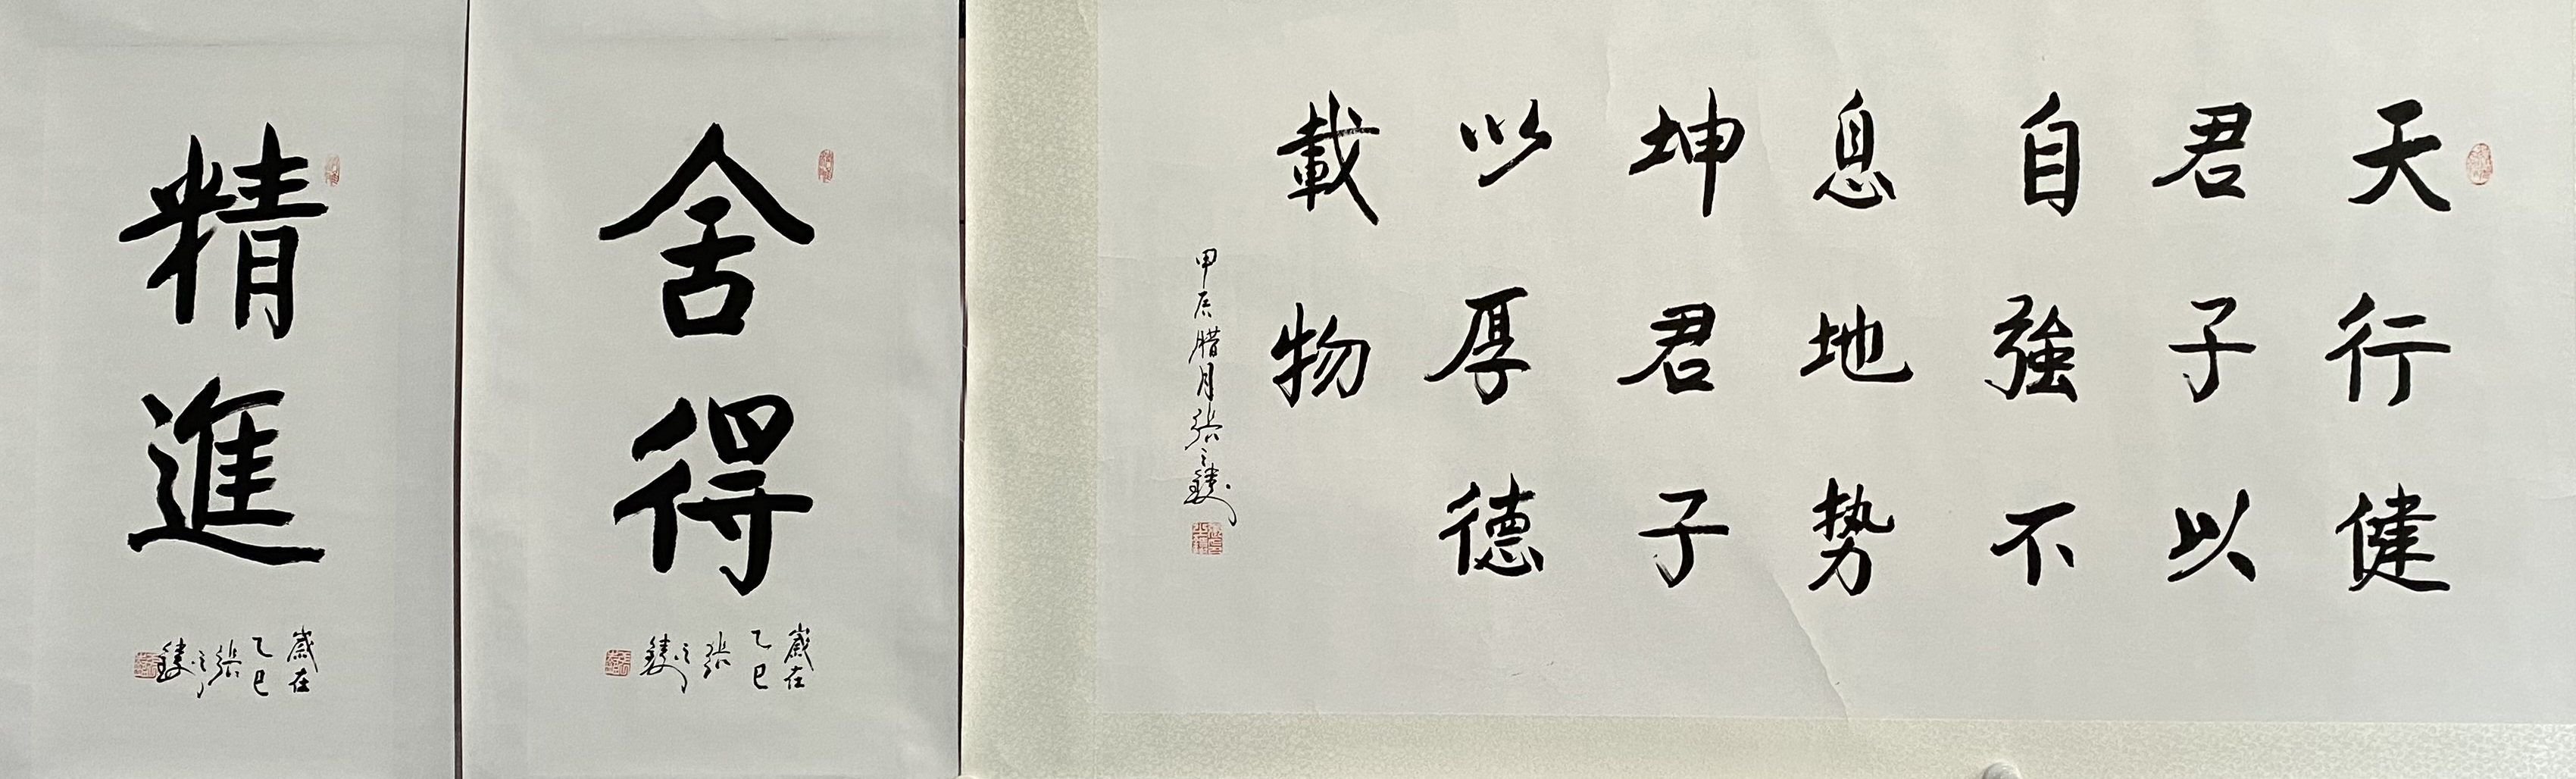 天行健
君子以
自強不
息地势
坤君子
以厚德
載物
甲辰腊月张之
舍得
歲在
乙巳
张
之
精進
歲在
乙巳
张
之